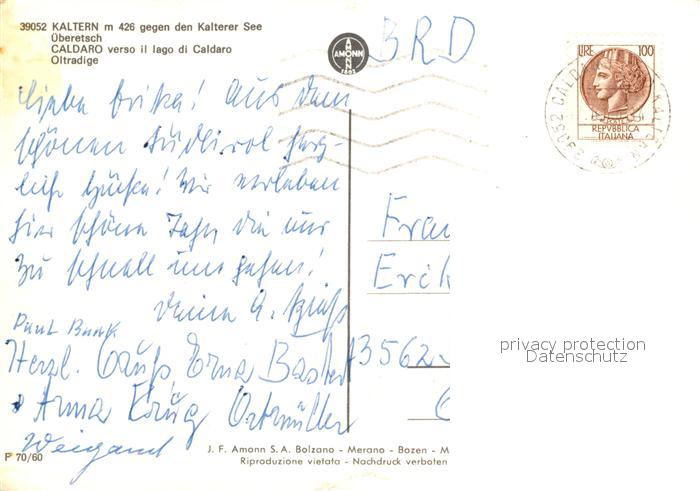 39052 KALTERN m 426 gegen den Kalterer See
Überetsch
CALDARO verso il lago di Caldaro
Oltradige
AMONN
1802
BRD
LIRE 100
REPVBBLICA
ITALIANA
39052 CALDARO KALTERN
Liebe Erika! Aus dem
schönen Südtirol herz-
liche Grüße! Wir verleben
hier schöne Tage, die nur
zu schnell umgehen!
Deine
Paul Bunk
Herzl. Gruß Erna Baster
Anna Krug Ostmüller
Weigand
Frau
Erik
3562
privacy protection
Datenschutz
P 70/60
J. F. Amonn S.A. Bolzano - Merano - Bozen - M
Riproduzione vietata - Nachdruck verboten